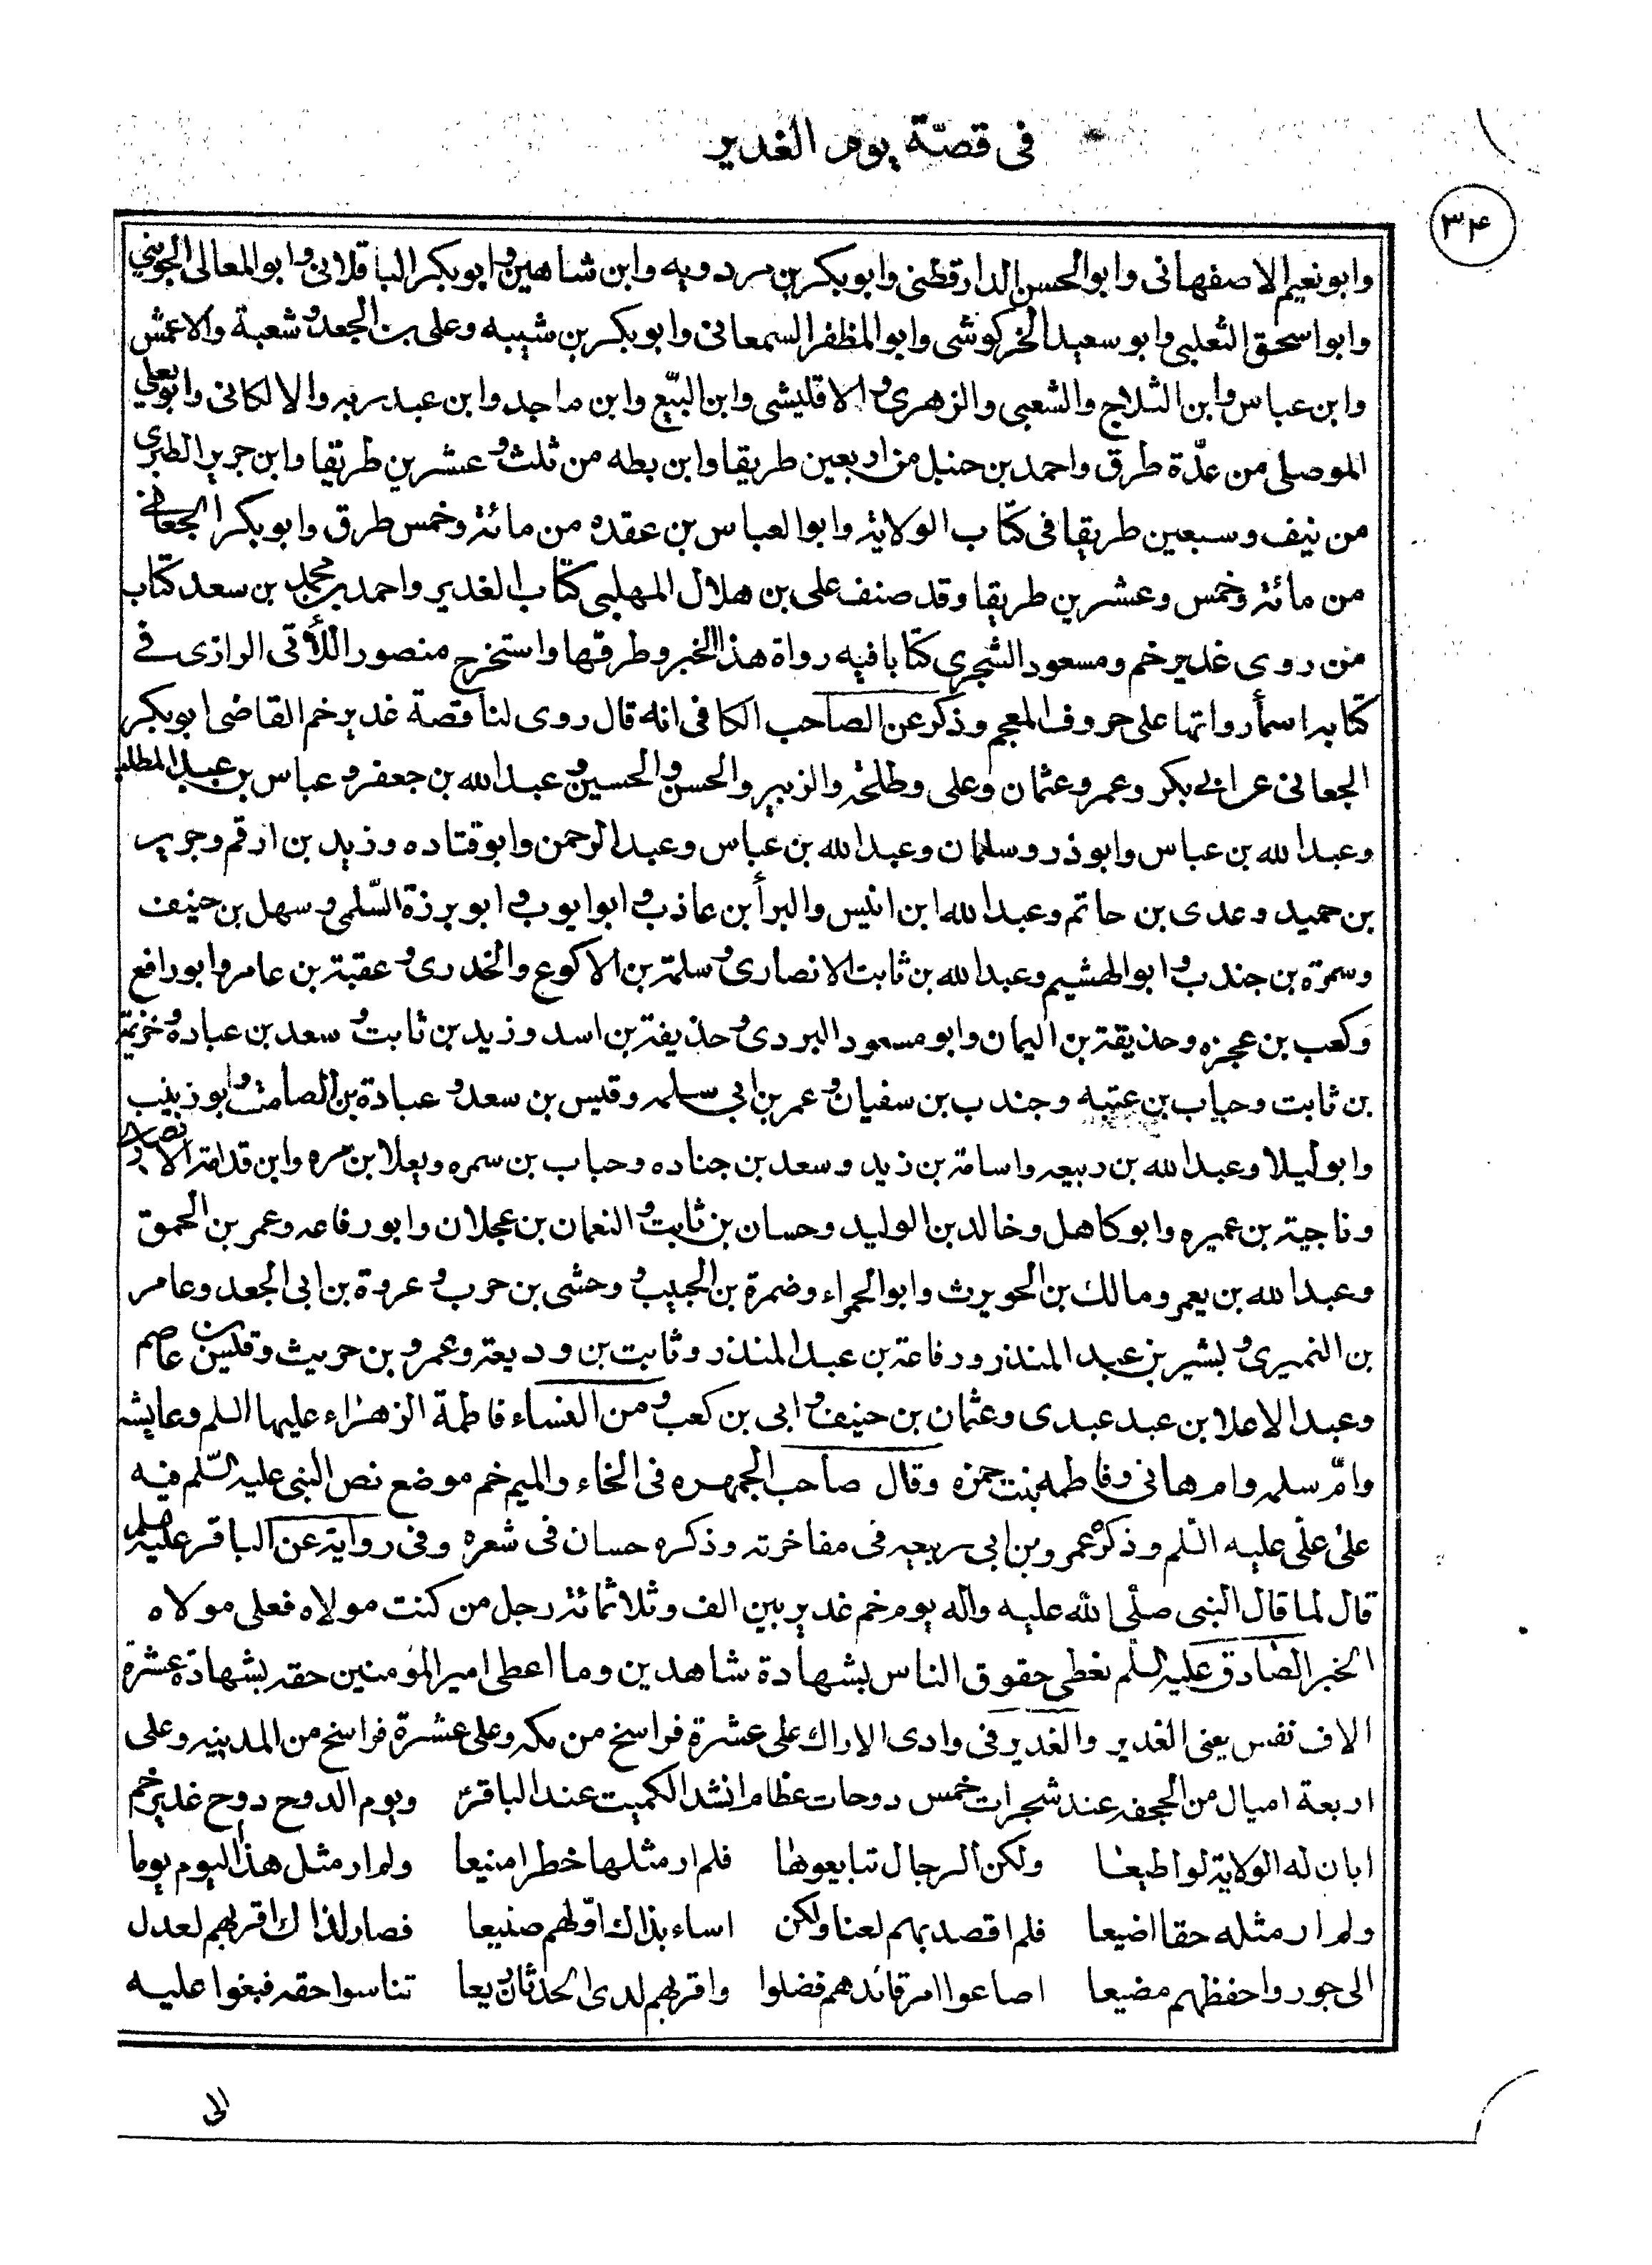 فى قصّة يوم الغدير
٣۴
وابو نعيم الاصفهانى وابو الحسن الدارقطنى وابو بكر بن مردويه وابن شاهين وابو بكر الباقلانى وابو المعالى الجوينى
وابو اسحق الثعلبى وابو سعيد الخركوشى وابو المظفر السمعانى وابو بكر بن شيبه وعلى بن الجعد وشعبة والاعمش
وابن عباس وابن الثلاج والشعبى والزهرى والاقليشى وابن البيّع وابن ماجه وابن عبد ربه والالكانى وابو يعلى
الموصلى من عدّة طرق واحمد بن حنبل من اربعين طريقا وابن بطه من ثلث وعشرين طريقا وابن جرير الطبرى
من نيف وسبعين طريقا فى كتاب الولاية وابو العباس بن عقده من مائة وخمس طرق وابو بكر الجعانى
من مائة وخمس وعشرين طريقا وقد صنف على بن هلال المهلبى كتاب الغدير واحمد بن محمد بن سعد كتاب
من روى غدير خم ومسعود الشجرى كتابا فيه رواة هذا الخبر وطرقها واستخرج منصور اللأتى الرازى فى
كتابه اسمأ رواتها على حروف المعجم وذكر عن الصاحب الكافى انه قال روى لنا قصة غدير خم القاضى ابو بكر
الجعانى عن ابى بكر وعمر وعثمان وعلى وطلحة والزبير والحسن والحسين وعبد الله بن جعفر وعباس بن عبد المطلب
وعبد الله بن عباس وابو ذر وسلمان وعبد الله بن عباس وعبد الرحمن وابو قتاده وزيد بن ارقم وجرير
بن حميد وعدى بن حاتم وعبد الله ابن انيس والبرأ بن عاذب وابو ايوب وابو برزة السّلمى وسهل بن حنيف
وسمرة بن جندب وابو الهشيم وعبد الله بن ثابت الانصارى وسلمة بن الاكوع والخدرى وعقبة بن عامر وابو رافع
وكعب بن عجزه وحذيقة بن اليمان وابو مسعود البردى وحذيفة بن اسد وزيد بن ثابت وسعد بن عباده وخزيمة
بن ثابت وحباب بن عتبه وجندب بن سفيان وعمر بن ابى سلمه وقيس بن سعد وعبادة بن الصامت وابو زينب
وابو ليلا وعبد الله بن ربيعه واسامة بن زيد وسعد بن جناده وحباب بن سمره ويعلا بن مره وابن قدامة الانصارى
وناجية بن عميره وابو كاهل وخالد بن الوليد وحسان بن ثابت والنعمان بن عجلان وابو رفاعه وعمر بن الحمق
وعبد الله بن يعمر ومالك بن الحويرث وابو الحمراء وضمرة بن الحبيب ووحشى بن حرب وعروة بن ابى الجعد وعامر
بن النميرى وبشير بن عبد المنذر ورفاعة بن عبد المنذر وثابت بن وديعة وعمرو بن حريث وقيس بن عاصم
وعبد الاعلا بن عبد عبدى وعثمان بن حنيف وابى بن كعب ومن النساء فاطمة الزهراء عليها السلم وعايشه
وامّ سلمه وام هانى وفاطمه بنت حمزه وقال صاحب الجمهره فى الخاء والميم خم موضع نص النبى عليه السّلم فيه
على علّى عليه السّلم وذكره عمرو بن ابى ربيعه فى مفاخرته وذكره حسان فى شعره وفى رواية عن الباقر عليه
قال لما قال النبى صلّى الله عليه واله يوم خم غدير بين الف وثلاثمائة رجل من كنت مولاه فعلى مولاه
الخبر الصادق عليه السلم نعطى حقوق الناس بشهادة شاهدين وما اعطى امير المؤمنين حقه بشهادة عشرة
الاف نفس يعنى الغدير والغدير فى وادى الاراك على عشرة فراسخ من مكه وعلى عشرة فراسخ من المدينه وعلى
اربعة اميال من الجحفه عند شجرات خمس دوحات عظام انشد الكميت عند الباقر ويوم الدوح دوح غدير خم
ابان له الولاية لو اطيعا ولكن الرجال تبايعوها فلم ار مثلها خطرا منيعا ولم ار مثل هذا اليوم يوما
ولم ار مثله حقا اضيعا فلم اقصد بهم لعنا ولكن اساء بذاك اوّلهم صنيعا فصار لذاك اقربهم لعدل
الى جور واحفظهم مضيعا اصاعوا امر قائدهم فضلوا واقربهم لدى الحدثان ريعا تناسوا حقه فبغوا عليه
الى